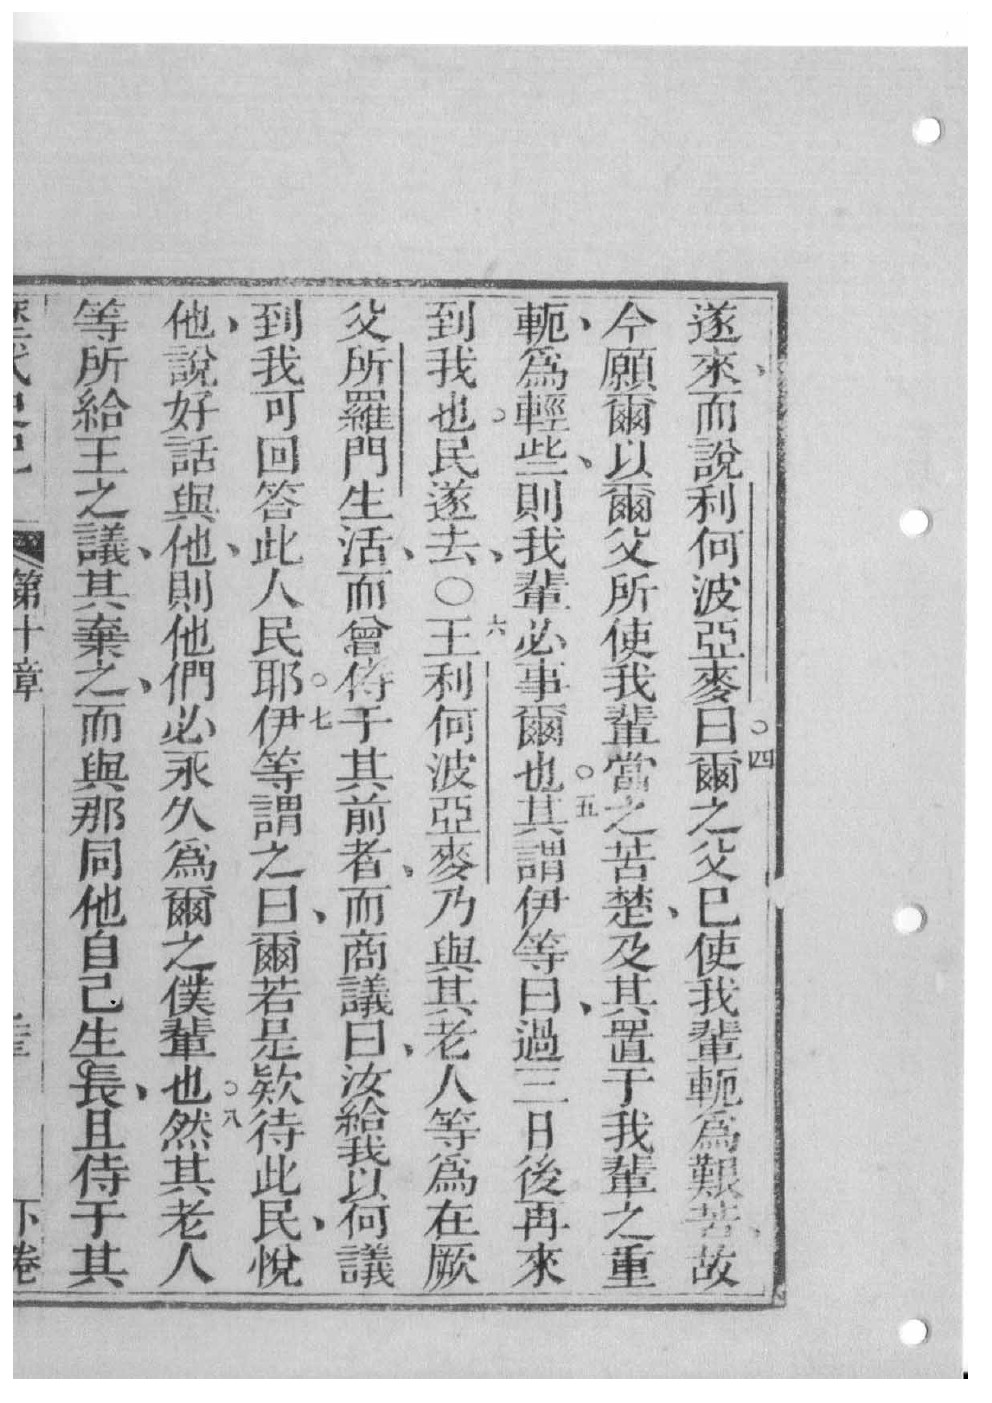 遂來、而說利何波亞麥曰○四爾之父已使我輩軛爲艱苦、故
今願爾以爾父所使我輩當之苦楚、及其置于我輩之重
軛、爲輕些、則我輩必事爾也○五其謂伊等曰、過三日後再來
到我也○民遂去、○六王利何波亞麥乃與其老人等爲在厥
父所羅門生活、而曾侍于其前者、而商議曰、汝給我以何議
到我可回答此人民耶○七伊等謂之曰、爾若是欵待此民、悅
他、說好話與他、則他們必永久爲爾之僕輩也○八然其老人
等所給王之議、其棄之、而與那同他自己生長、且侍于其
歷代史記 第十章 下卷